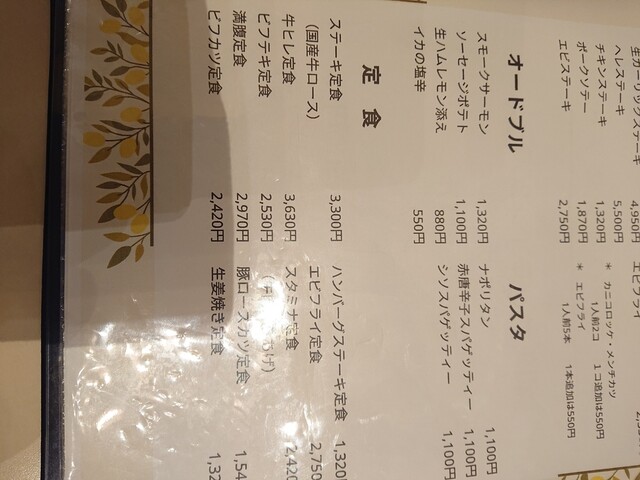 4,950円
ヘレステーキ 5,500円
チキンステーキ 1,320円
ポークソテー 1,870円
エビステーキ 2,750円
エビフライ
＊ カニコロッケ・メンチカツ
1人前2コ 1コ追加は550円
＊ エビフライ
1人前5本 1本追加は550円
オードブル
スモークサーモン 1,320円
ソーセージポテト 1,100円
生ハムレモン添え 880円
イカの塩辛 550円
パスタ
ナポリタン 1,100円
赤唐辛子スパゲッティー 1,100円
シソスパゲッティー 1,100円
定食
ステーキ定食 3,300円
（国産牛ロース）
牛ヒレ定食 3,630円
ビフテキ定食 2,530円
満腹定食 2,970円
ビフカツ定食 2,420円
ハンバーグステーキ定食 1,320
エビフライ定食 2,750
スタミナ定食 2,420
豚ロースカツ定食 1,54
生姜焼き定食 1,32